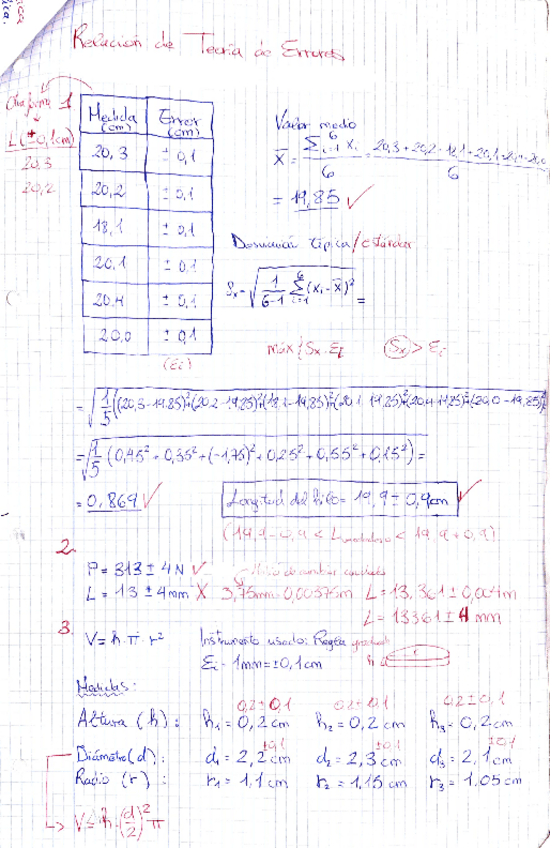 Relación de Teoría de Errores
Otra forma
L(±0,1cm)
20,3
20,2
1
Medida (cm) Error (cm)
20,3 ±0,1
20,2 ±0,1
18,1 ±0,1
20,1 ±0,1
20,4 ±0,1
20,0 ±0,1
(Ei)
Valor medio
X̄ = Σ⁶ᵢ₌₁ xᵢ / 6 = 20,3+20,2+18,1+20,1+20,4+20,0 / 6
= 19,85 ✓
Desviación típica/estándar
Sx = √(1/(6-1) Σ⁶ᵢ₌₁ (xᵢ - x̄)²) =
máx {Sx, Ei Sx > Ei
= √(1/5 ((20,3-19,85)²+(20,2-19,85)²+(18,1-19,85)²+(20,1-19,85)²+(20,4-19,85)²+(20,0-19,85)²
= √(1/5 (0,45² + 0,35² + (-1,75)² + 0,25² + 0,55² + 0,15²) =
= 0,869 ✓ Longitud del hilo = 19,9 ± 0,9cm ✓
(19,9 - 0,9 < < 19,9 + 0,9)
2.
P = 313 ± 4 N ✓
L = 13 ± 4 mm X 3,75mm = 0,00375m L = 13,361 ± 0,004m
L = 13361 ± 4 mm
3.
V = h · π · r² Instrumento usado: Regla graduada
Ei = 1mm = ±0,1cm
Medidas:
0,2±0,1 0,2±0,1 0,2±0,1
Altura (h): h₁ = 0,2 cm h₂ = 0,2 cm h₃ = 0,2 cm
±0,1 ±0,1 ±0,1
Diámetro (d): d₁ = 2,2 cm d₂ = 2,3 cm d₃ = 2,1 cm
Radio (r): r₁ = 1,1 cm r₂ = 1,15 cm r₃ = 1,05 cm
h (d/2)² π